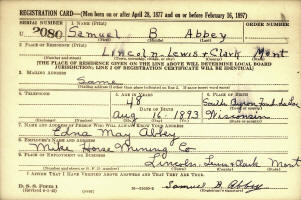 REGISTRATION CARD—(Men born on or after April 28, 1877 and on or before February 16, 1897)
SERIAL NUMBER 1. NAME (Print) ORDER NUMBER
U 2080 Samuel B Abbey
2. PLACE OF RESIDENCE (Print)
Lincoln Lewis & Clark Mont
[THE PLACE OF RESIDENCE GIVEN ON THE LINE ABOVE WILL DETERMINE LOCAL BOARD
JURISDICTION; LINE 2 OF REGISTRATION CERTIFICATE WILL BE IDENTICAL]
3. MAILING ADDRESS
Same
4. TELEPHONE 5. AGE IN YEARS 6. PLACE OF BIRTH
48
DATE OF BIRTH
Aug 16 1893 Wisconsin
7. NAME AND ADDRESS OF PERSON WHO WILL ALWAYS KNOW YOUR ADDRESS
Edna May Abbey
8. EMPLOYER'S NAME AND ADDRESS
Mike Horse Mining Co
9. PLACE OF EMPLOYMENT OR BUSINESS
Lincoln Lewis & Clark Mont
I AFFIRM THAT I HAVE VERIFIED ABOVE ANSWERS AND THAT THEY ARE TRUE.
D. S. S. Form 1 Samuel B. Abbey